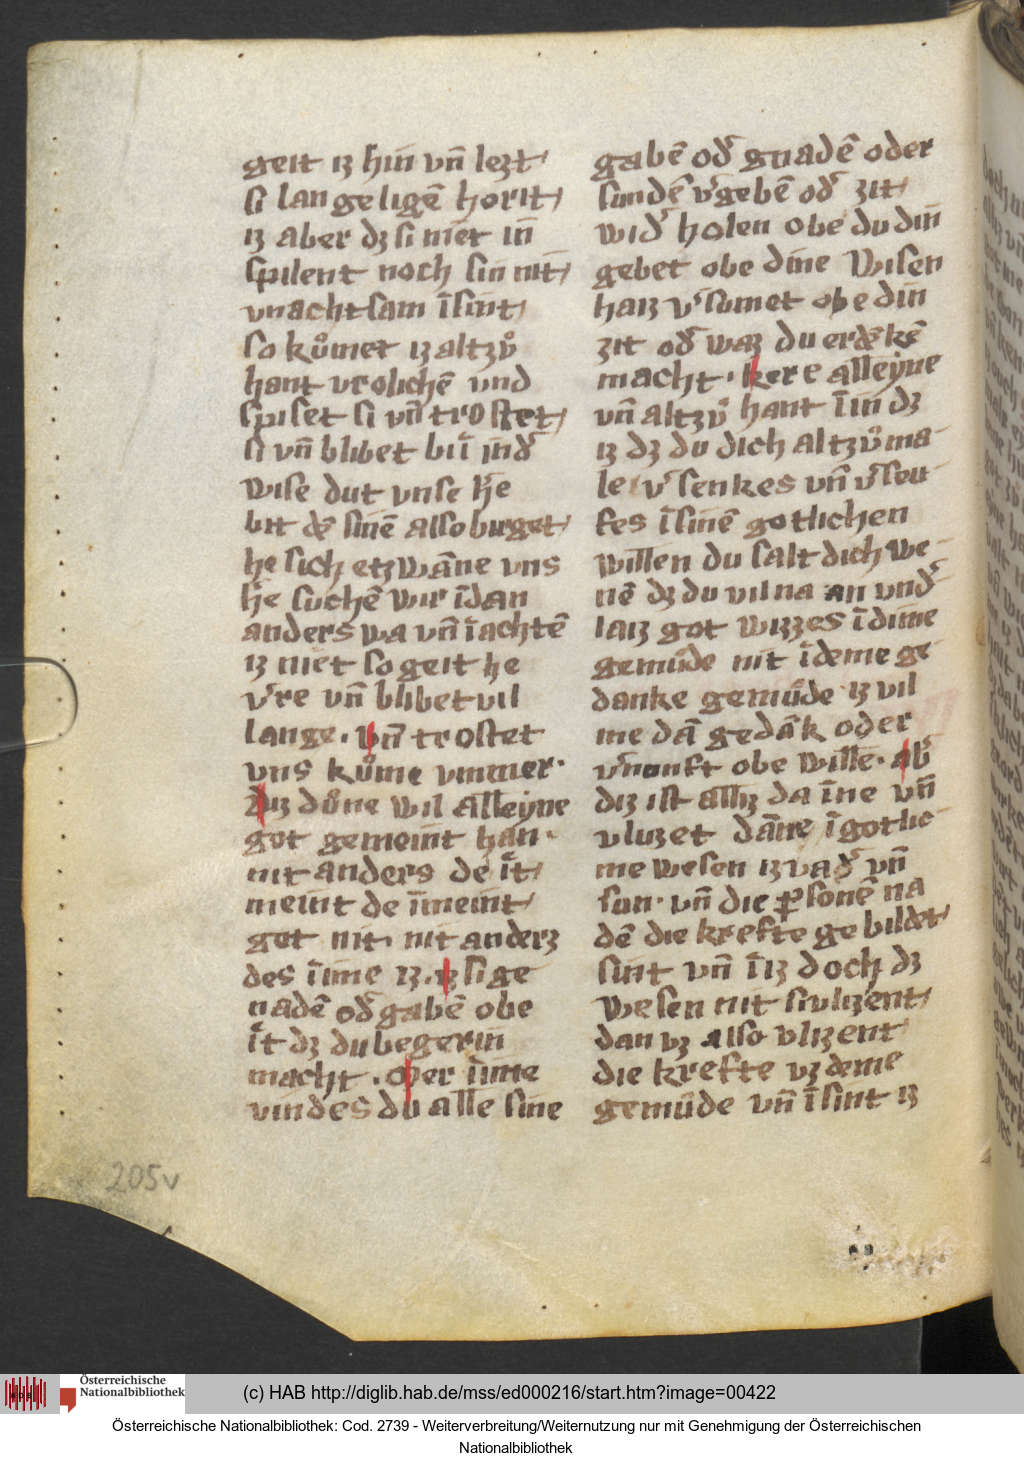 geit iz hin vn̄ lezt
si lange ligē horit
iz aber dz si niet in̄
spilent noch sin nit
vnachtsam īsint
so kůmet iz altzů
hant vrolichē vnd
spiset si vn̄ trostet
si vn̄ blibet bi
wise dut vnse
bit sinē also burget
he sich etzwāne vns
suchē wir īdan
anders wa vn̄ īachtē
iz niet so geit he
v're vn̄ blibet vil
lange · vn̄ trostet
vns kůme vmmer ·
Diz důne wil alleyne
got gemeint han ·
nit anders de
meint de īmeint
got nit · nit anderz
des īime iz · iz si ge
nadē od' gabē obe
dz du begerin
macht · Oder
vindes du alle sine
gabē od' gnadē oder
sundē v'gebē od' zit
wid' holen obe du din
gebet obe dine wisen
haiz v'sumet obe din
zit od' waz du erdēkē
macht · kere alleyne
vn̄ altzů hant īin dz
iz dz du dich altzůma
le v'senkes vn̄ v'seu
fes īsinē gotlichen
willen du salt dich we
nē dz du vil na an vnd'
laiz got wizzes īdime
gemůde nit īdeme ge
danke gemůde iz vil
me dā gedāk oder
v'nunft obe wille · ab'
diz ist alliz da īne vn̄
vluzet dāne īgotlic
me wesen iz vad' vn̄
sun · vn̄ die ꝑsonē na
dē die krefte gebildet
sint vn̄ īiz doch dz
wesen nit si vlizent
dan vz also vlizent
die krefte vz deme
gemůde vn̄ īsint iz
205v
Österreichische
Nationalbibliothek
(c) HAB http://diglib.hab.de/mss/ed000216/start.htm?image=00422
Österreichische Nationalbibliothek: Cod. 2739 - Weiterverbreitung/Weiternutzung nur mit Genehmigung der Österreichischen
Nationalbibliothek